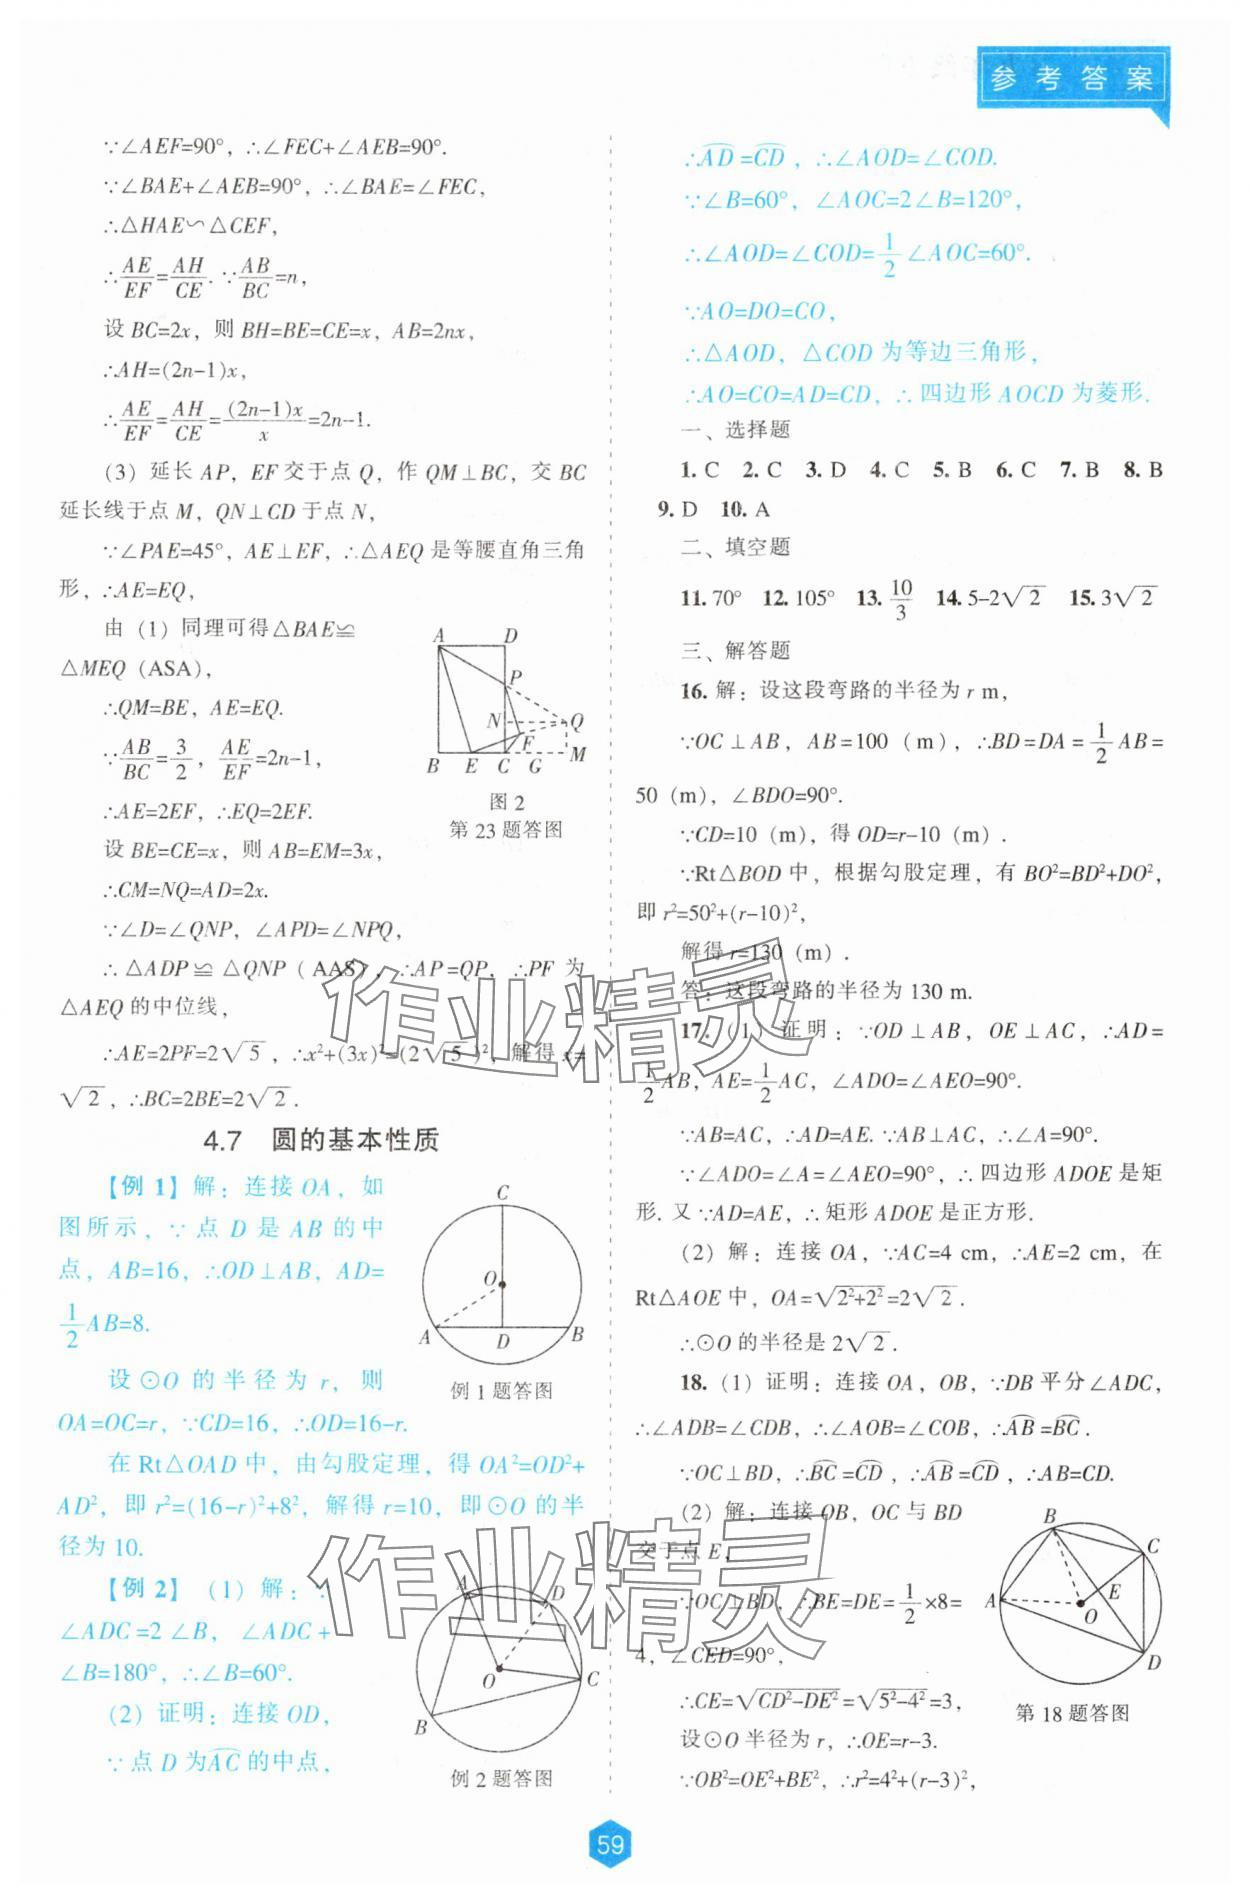 参考答案
∵∠AEF=90°，∴∠FEC+∠AEB=90°.
∵∠BAE+∠AEB=90°，∴∠BAE=∠FEC，
∴△HAE∽△CEF，
∴AE/EF=AH/CE. ∵AB/BC=n，
设 BC=2x，则 BH=BE=CE=x，AB=2nx，
∴AH=(2n-1)x，
∴AE/EF=AH/CE=(2n-1)x/x=2n-1.
(3) 延长 AP，EF 交于点 Q，作 QM⊥BC，交 BC
延长线于点 M，QN⊥CD 于点 N，
∵∠PAE=45°，AE⊥EF，∴△AEQ 是等腰直角三角
形，∴AE=EQ，
由（1）同理可得△BAE≌
△MEQ（ASA），
∴QM=BE，AE=EQ.
∵AB/BC=3/2，AE/EF=2n-1，
∴AE=2EF，∴EQ=2EF.
设 BE=CE=x，则 AB=EM=3x，
∴CM=NQ=AD=2x.
∵∠D=∠QNP，∠APD=∠NPQ，
∴△ADP≌△QNP（AAS），∴AP=QP，∴PF 为
△AEQ 的中位线，
∴AE=2PF=2√5，∴x²+(3x)²=(2√5)²，解得 x=
√2，∴BC=2BE=2√2.
A D P N Q F B E C G M
图 2
第 23 题答图
4.7 圆的基本性质
【例 1】解：连接 OA，如
图所示，∵点 D 是 AB 的中
点，AB=16，∴OD⊥AB，AD=
1/2AB=8.
设⊙O 的半径为 r，则
OA=OC=r，∵CD=16，∴OD=16-r.
C O A D B
例 1 题答图
在 Rt△OAD 中，由勾股定理，得 OA²=OD²+
AD²，即 r²=(16-r)²+8²，解得 r=10，即⊙O 的半
径为 10.
【例 2】（1）解：∵
∠ADC=2∠B，∠ADC+
∠B=180°，∴∠B=60°.
(2) 证明：连接 OD，
∵点 D 为AC⌒的中点，
A D O C B
例 2 题答图
∴AD⌒=CD⌒，∴∠AOD=∠COD.
∵∠B=60°，∠AOC=2∠B=120°，
∴∠AOD=∠COD=1/2∠AOC=60°.
∵AO=DO=CO，
∴△AOD，△COD 为等边三角形，
∴AO=CO=AD=CD，∴四边形 AOCD 为菱形.
一、选择题
1. C 2. C 3. D 4. C 5. B 6. C 7. B 8. B
9. D 10. A
二、填空题
11. 70° 12. 105° 13. 10/3 14. 5-2√2 15. 3√2
三、解答题
16. 解：设这段弯路的半径为 r m，
∵OC⊥AB，AB=100（m），∴BD=DA=1/2AB=
50（m），∠BDO=90°.
∵CD=10（m），得 OD=r-10（m）.
∵Rt△BOD 中，根据勾股定理，有 BO²=BD²+DO²，
即 r²=50²+(r-10)²，
解得 r=130（m）.
答：这段弯路的半径为 130 m.
17.（1）证明：∵OD⊥AB，OE⊥AC，∴AD=
1/2AB，AE=1/2AC，∠ADO=∠AEO=90°.
∵AB=AC，∴AD=AE. ∵AB⊥AC，∴∠A=90°.
∵∠ADO=∠A=∠AEO=90°，∴四边形 ADOE 是矩
形. 又∵AD=AE，∴矩形 ADOE 是正方形.
(2) 解：连接 OA，∵AC=4 cm，∴AE=2 cm，在
Rt△AOE 中，OA=√(2²+2²)=2√2.
∴⊙O 的半径是 2√2.
18. (1) 证明：连接 OA，OB，∵DB 平分∠ADC，
∴∠ADB=∠CDB，∴∠AOB=∠COB，∴AB⌒=BC⌒.
∵OC⊥BD，∴BC⌒=CD⌒，∴AB⌒=CD⌒，∴AB=CD.
(2) 解：连接 OB，OC 与 BD
交于点 E，
∵OC⊥BD，∴BE=DE=1/2×8=
4，∠CED=90°，
∴CE=√(CD²-DE²)=√(5²-4²)=3，
设⊙O 半径为 r，∴OE=r-3.
∵OB²=OE²+BE²，∴r²=4²+(r-3)²，
B C E A O D
第 18 题答图
作业精灵
作业精灵
59